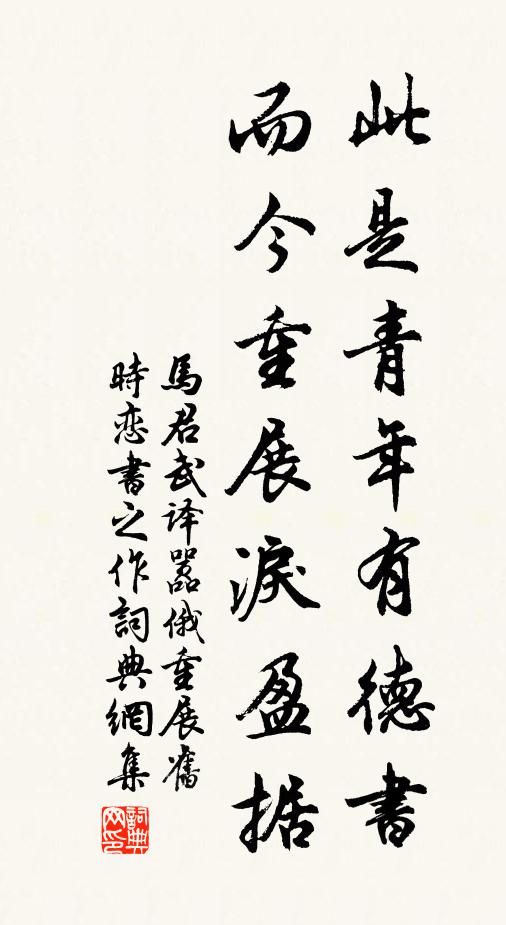 此是青年有德書
而今重展淚盈据
馬君武译嚣俄重展舊
時恋書之作詞典網集
詞典
网印